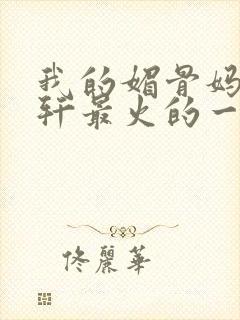 我的媚骨妈
轩最火的一
佟麗華